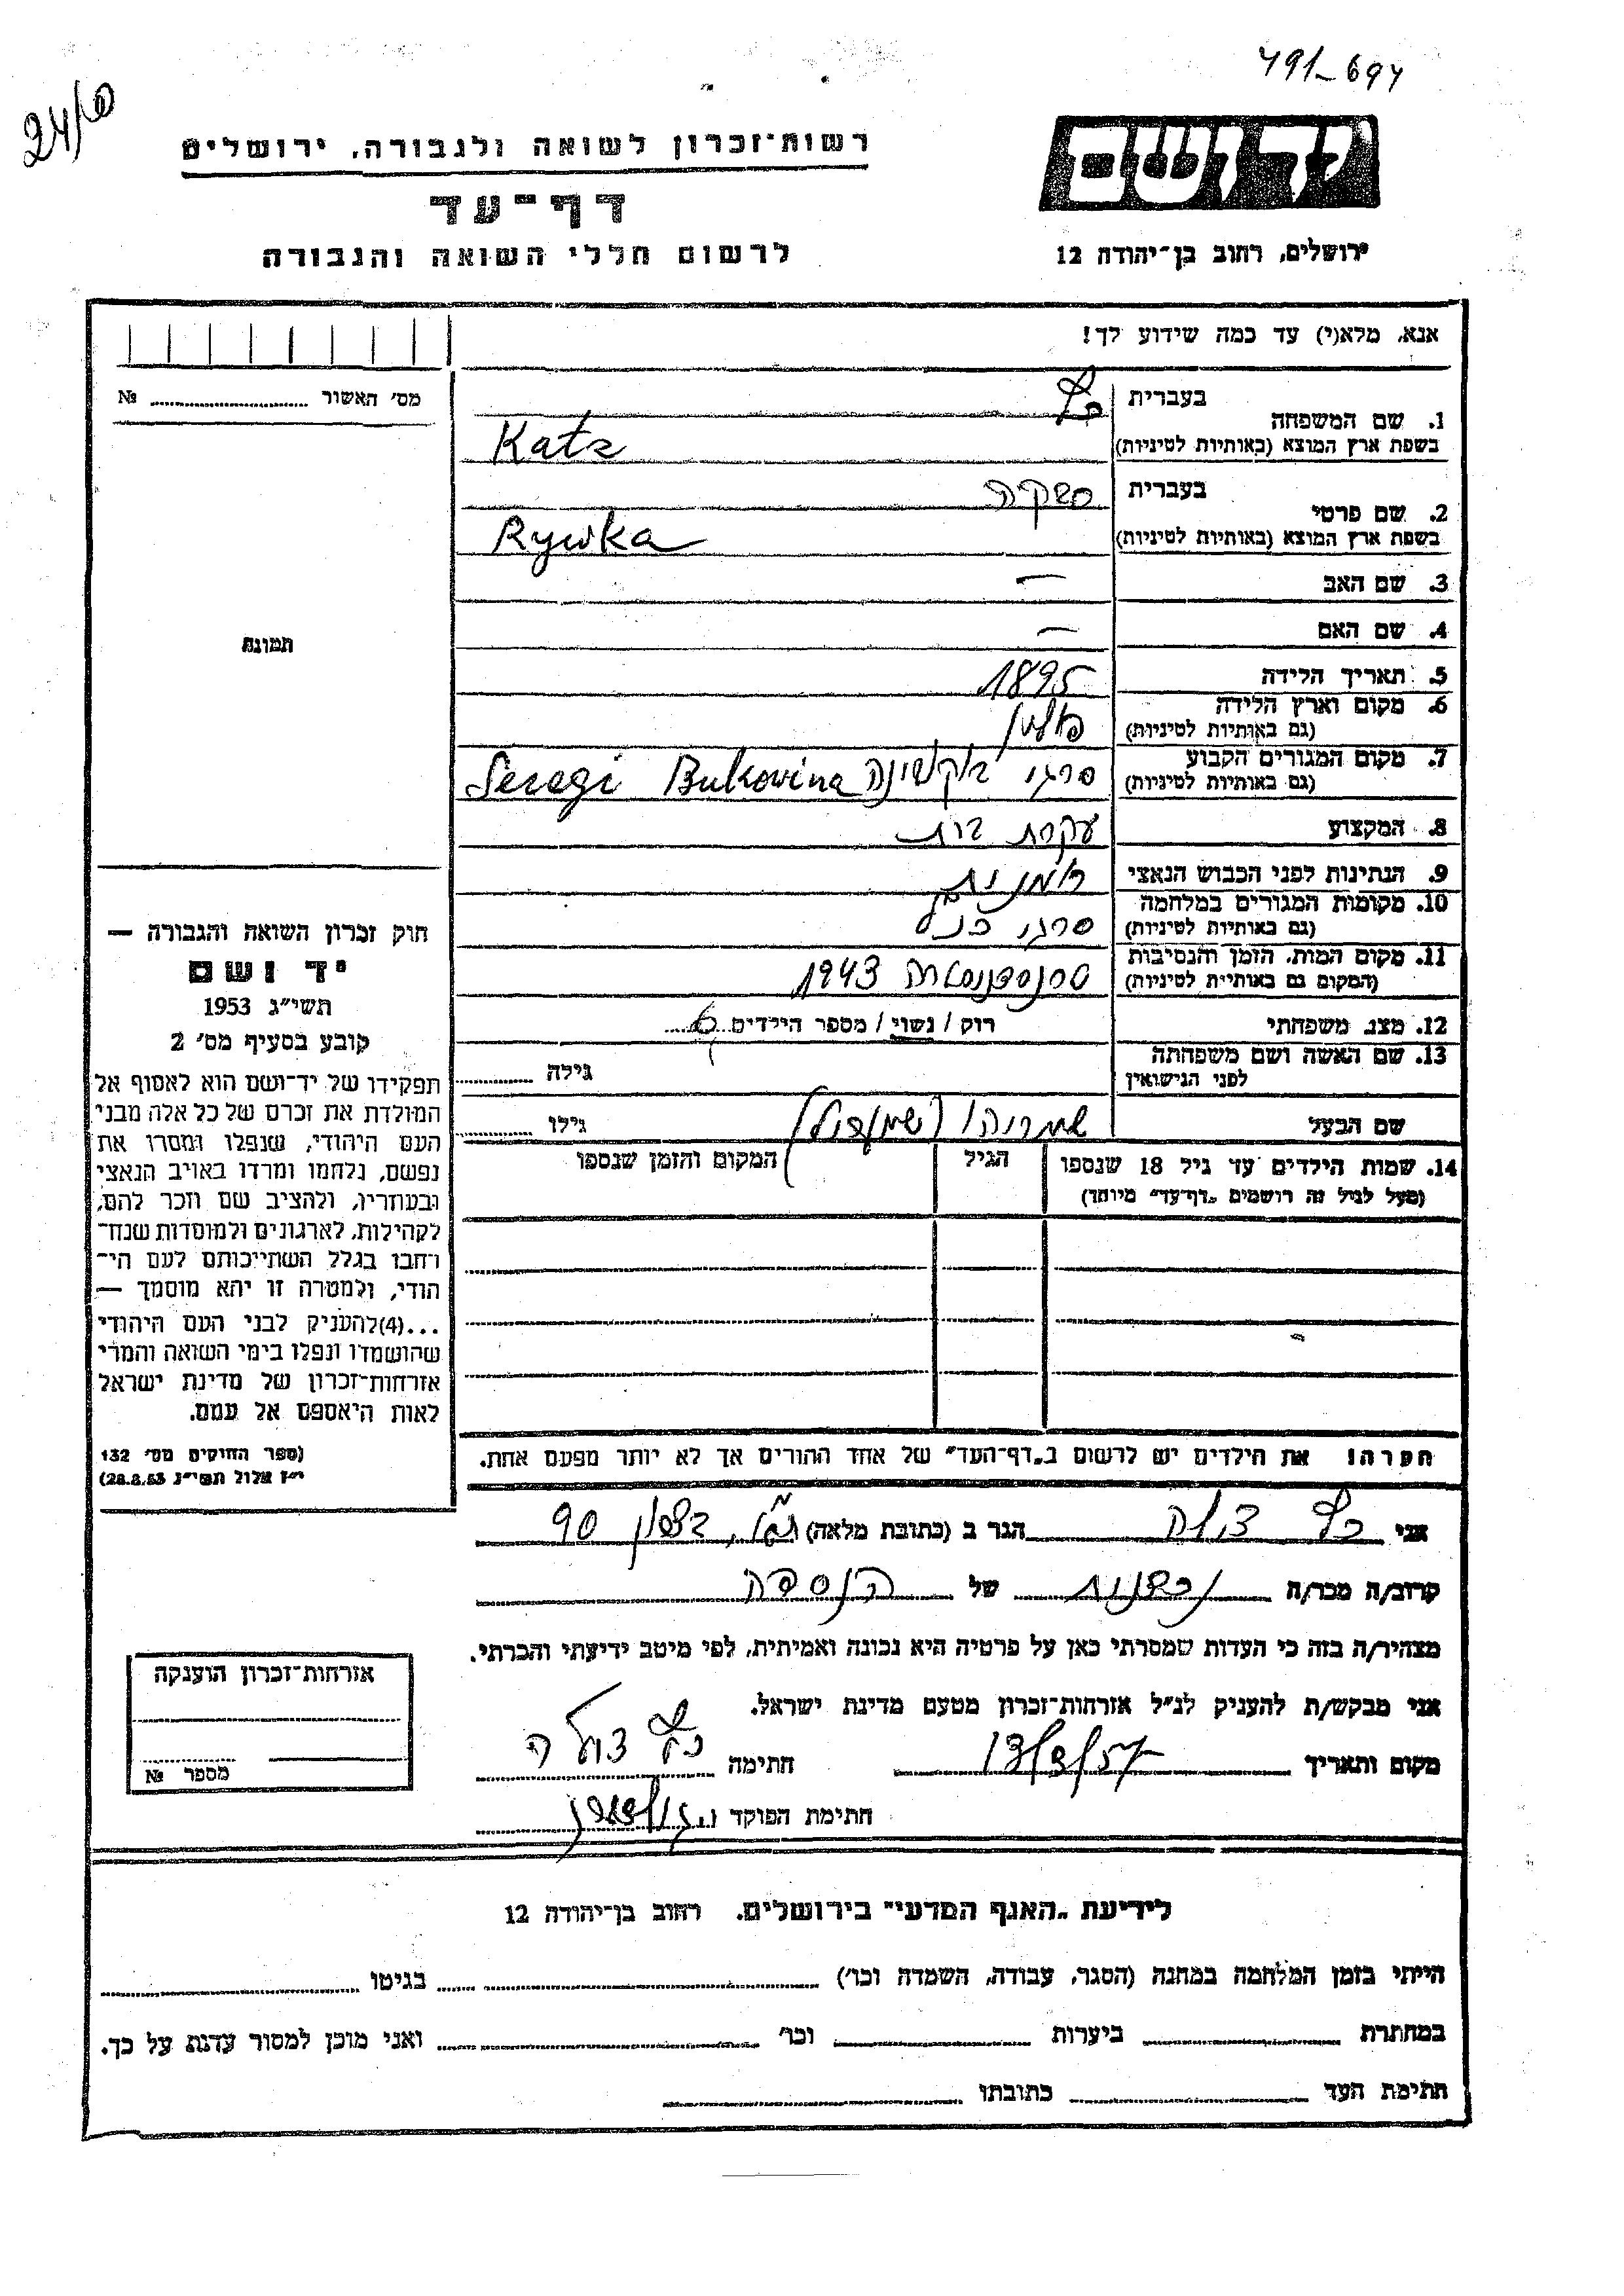 491-694
24/10
יד ושם
ירושלים, רחוב בן־יהודה 12
רשות־זכרון לשואה ולגבורה, ירושלים
דף־עד
לרשום חללי השואה והגבורה
אנא, מלא(י) עד כמה שידוע לך!
מס׳ האשור № 
1. שם המשפחה
בעברית כץ
בשפת ארץ המוצא (באותיות לטיניות) Katz
2. שם פרטי
בעברית
בשפת ארץ המוצא (באותיות לטיניות) Rywka
3. שם האב —
4. שם האם —
5. תאריך הלידה 1895
6. מקום וארץ הלידה
(גם באותיות לטיניות)
7. מקום המגורים הקבוע
(גם באותיות לטיניות) סרגי בוקובינה Seregi Bukovina
8. המקצוע עקרת בית
9. הנתינות לפני הכבוש הנאצי רומנית
10. מקומות המגורים במלחמה
(גם באותיות לטיניות) סרגי כנ״ל
11. מקום המות, הזמן והנסיבות
(המקום גם באותיות לטיניות) 1943
12. מצב משפחתי רוק / נשוי / מספר הילדים 6
13. שם האשה ושם משפחתה
לפני הנישואין גילה
שם הבעל גילו
14. שמות הילדים עד גיל 18 שנספו
(מעל לגיל זה רושמים „דף־עד״ מיוחד)
הגיל
המקום והזמן שנספו
תמונה
חוק זכרון השואה והגבורה —
יד ושם
תשי״ג 1953
קובע בסעיף מס׳ 2
תפקידו של יד־ושם הוא לאסוף אל
המולדת את זכרם של כל אלה מבני
העם היהודי, שנפלו ומסרו את
נפשם, נלחמו ומרדו באויב הנאצי
ובעוזריו, ולהציב שם וזכר להם,
לקהילות, לארגונים ולמוסדות שנח־
רחבו בגלל השתייכותם לעם הי־
הודי, ולמטרה זו יהא מוסמך —
...(4)להעניק לבני העם היהודי
שהושמדו ונפלו בימי השואה והמרי
אזרחות־זכרון של מדינת ישראל
לאות היאספם אל עמם.
(ספר החוקים מס׳ 132
י״ז אלול תשי״ג 28.8.53)
הערה! את הילדים יש לרשום ב„דף־העד״ של אחד ההורים אך לא יותר מפעם אחת.
אני כץ הגר ב (כתובת מלאה) 90
קרוב/ה מכר/ה של הנספה
מצהיר/ה בזה כי העדות שמסרתי כאן על פרטיה היא נכונה ואמיתית, לפי מיטב ידיעתי והכרתי.
אני מבקש/ת להעניק לנ״ל אזרחות־זכרון מטעם מדינת ישראל.
מקום ותאריך 13/3/57 חתימה כץ
חתימת הפוקד
אזרחות־זכרון הוענקה
מספר №
לידיעת „האגף המדעי״ בירושלים. רחוב בן־יהודה 12
הייתי בזמן המלחמה במחנה (הסגר, עבודה, השמדה וכו׳) בגיטו
במחתרת ביערות וכו׳ ואני מוכן למסור עדות על כך.
חתימת העד כתובתו